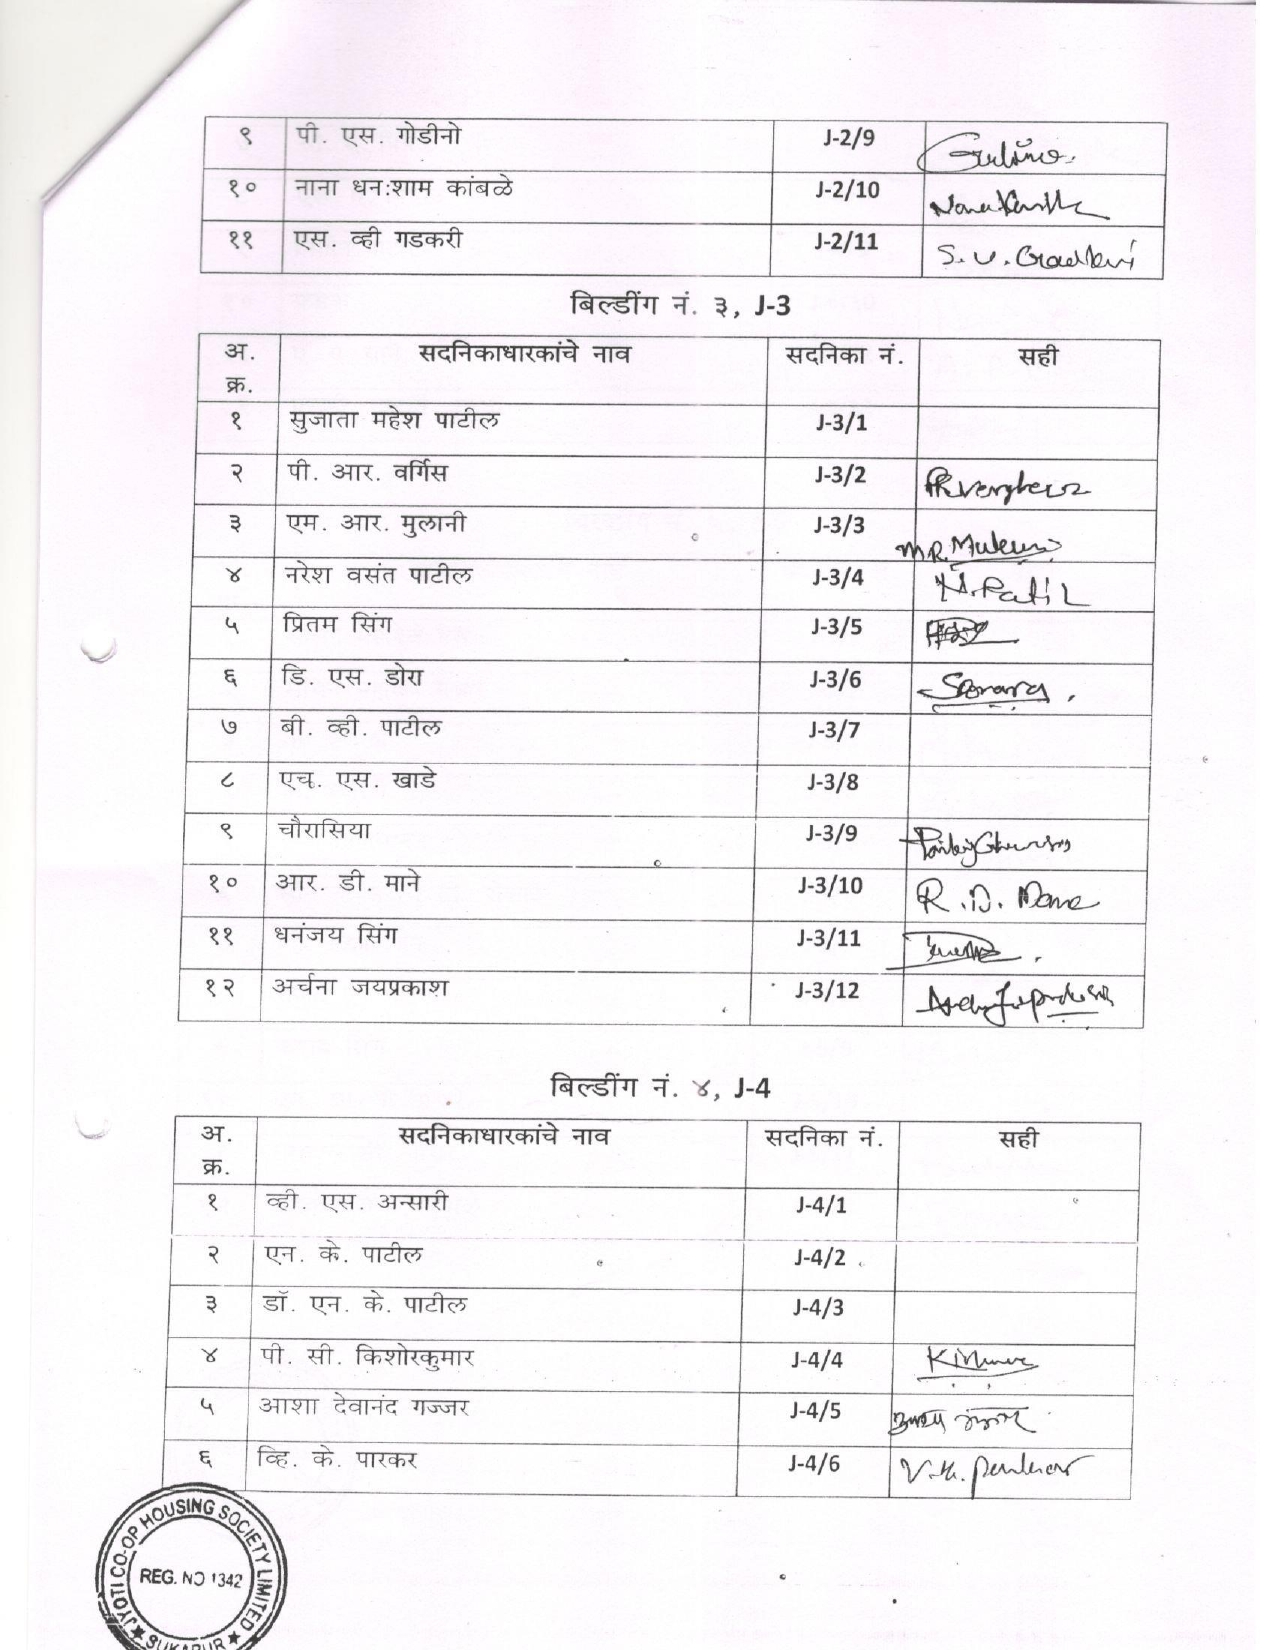 ९ पी. एस. गोडीनो J-2/9
१० नाना धनःशाम कांबळे J-2/10
११ एस. व्ही गडकरी J-2/11 S. V. Gadkari
बिल्डींग नं. ३, J-3
अ. क्र. सदनिकाधारकांचे नाव सदनिका नं. सही
१ सुजाता महेश पाटील J-3/1
२ पी. आर. वर्गिस J-3/2 PRVerghese
३ एम. आर. मुलानी J-3/3 M.R. Mulani
४ नरेश वसंत पाटील J-3/4 N. Patil
५ प्रितम सिंग J-3/5
६ डि. एस. डोरा J-3/6
७ बी. व्ही. पाटील J-3/7
८ एच. एस. खाडे J-3/8
९ चौरासिया J-3/9
१० आर. डी. माने J-3/10 R. D. Mane
११ धनंजय सिंग J-3/11
१२ अर्चना जयप्रकाश J-3/12
बिल्डींग नं. ४, J-4
अ. क्र. सदनिकाधारकांचे नाव सदनिका नं. सही
१ व्ही. एस. अन्सारी J-4/1
२ एन. के. पाटील J-4/2
३ डॉ. एन. के. पाटील J-4/3
४ पी. सी. किशोरकुमार J-4/4
५ आशा देवानंद गज्जर J-4/5
६ व्हि. के. पारकर J-4/6 V. K. Parkar
JYOTI CO-OP HOUSING SOCIETY LIMITED
REG. NO 1342
★ SUKAPUR ★